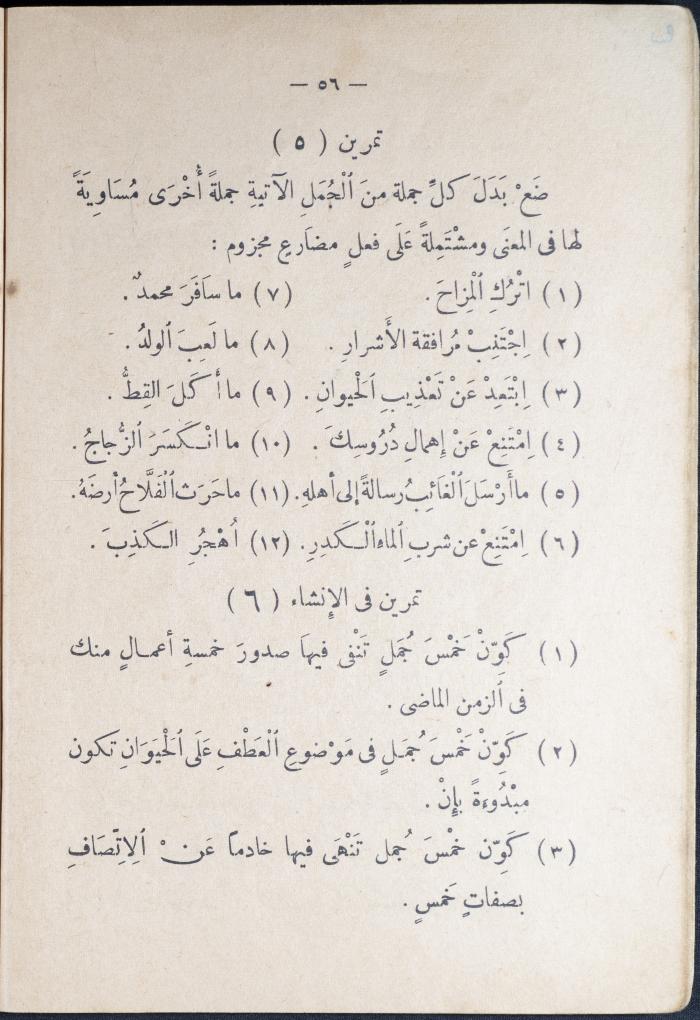 — ٥٦ —
تمرين ( ٥ )
ضَعْ بَدَلَ كلِّ جملة منَ ٱلْجُمَلِ الآتيةِ جملةً أُخْرَى مُسَاوِيَةً
لها فى المعنَى ومشْتَمِلةً عَلَى فعلٍ مضارعٍ مجزوم :
(١) اتْرُكِ ٱلْمِزاحَ . (٧) ما سافَرَ محمدٌ .
(٢) اِجْتَنِبْ مُرافقةَ الأَشرارِ . (٨) ما لَعِبَ ٱلولدُ .
(٣) اِبْتَعِدْ عَنْ تَعْذِيبِ ٱلحيوانِ . (٩) ما أَكَلَ القِطُّ .
(٤) اِمْتَنِعْ عَنْ إِهمالِ دُرُوسِكَ . (١٠) ما انْكَسَرَ ٱلزُّجاجُ .
(٥) ما أَرْسَلَ ٱلْغَائِبُ رسالةً إلى أهلهِ . (١١) ما حَرَث ٱلْفَلَّاحُ أرضَهُ .
(٦) اِمْتَنِعْ عن شربِ ٱلماءِ ٱلْكَدِرِ . (١٢) اُهْجُرِ الكَذِبَ .
تمرين فى الإِنشاء ( ٦ )
(١) كَوِّنْ خَمْسَ جُمَلٍ تَنْفى فيهاَ صدورَ خمسةِ أعمالٍ منك
فى ٱلزمن الماضى .
(٢) كَوِّنْ خَمْسَ جُمَلٍ فى مَوْضوعِ ٱلْعَطْفِ عَلَى ٱلحْيَوَانِ تكون
مبْدُوءَةً بإِنْ .
(٣) كَوِّن خمْسَ جُمل تَنْهَى فيها خادماً عَنْ ٱلِاتِّصَافِ
بصفاتٍ خَمسٍ .